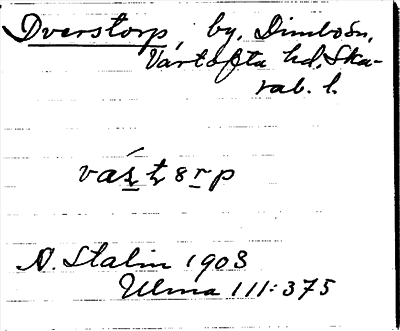 Dverstorp, by, Dimbo sn,
Vartofta hd, Ska-
rab. l.
vás̱ ṯ 8 ṟ p
N. Stalin 1903
Ulma 111:375